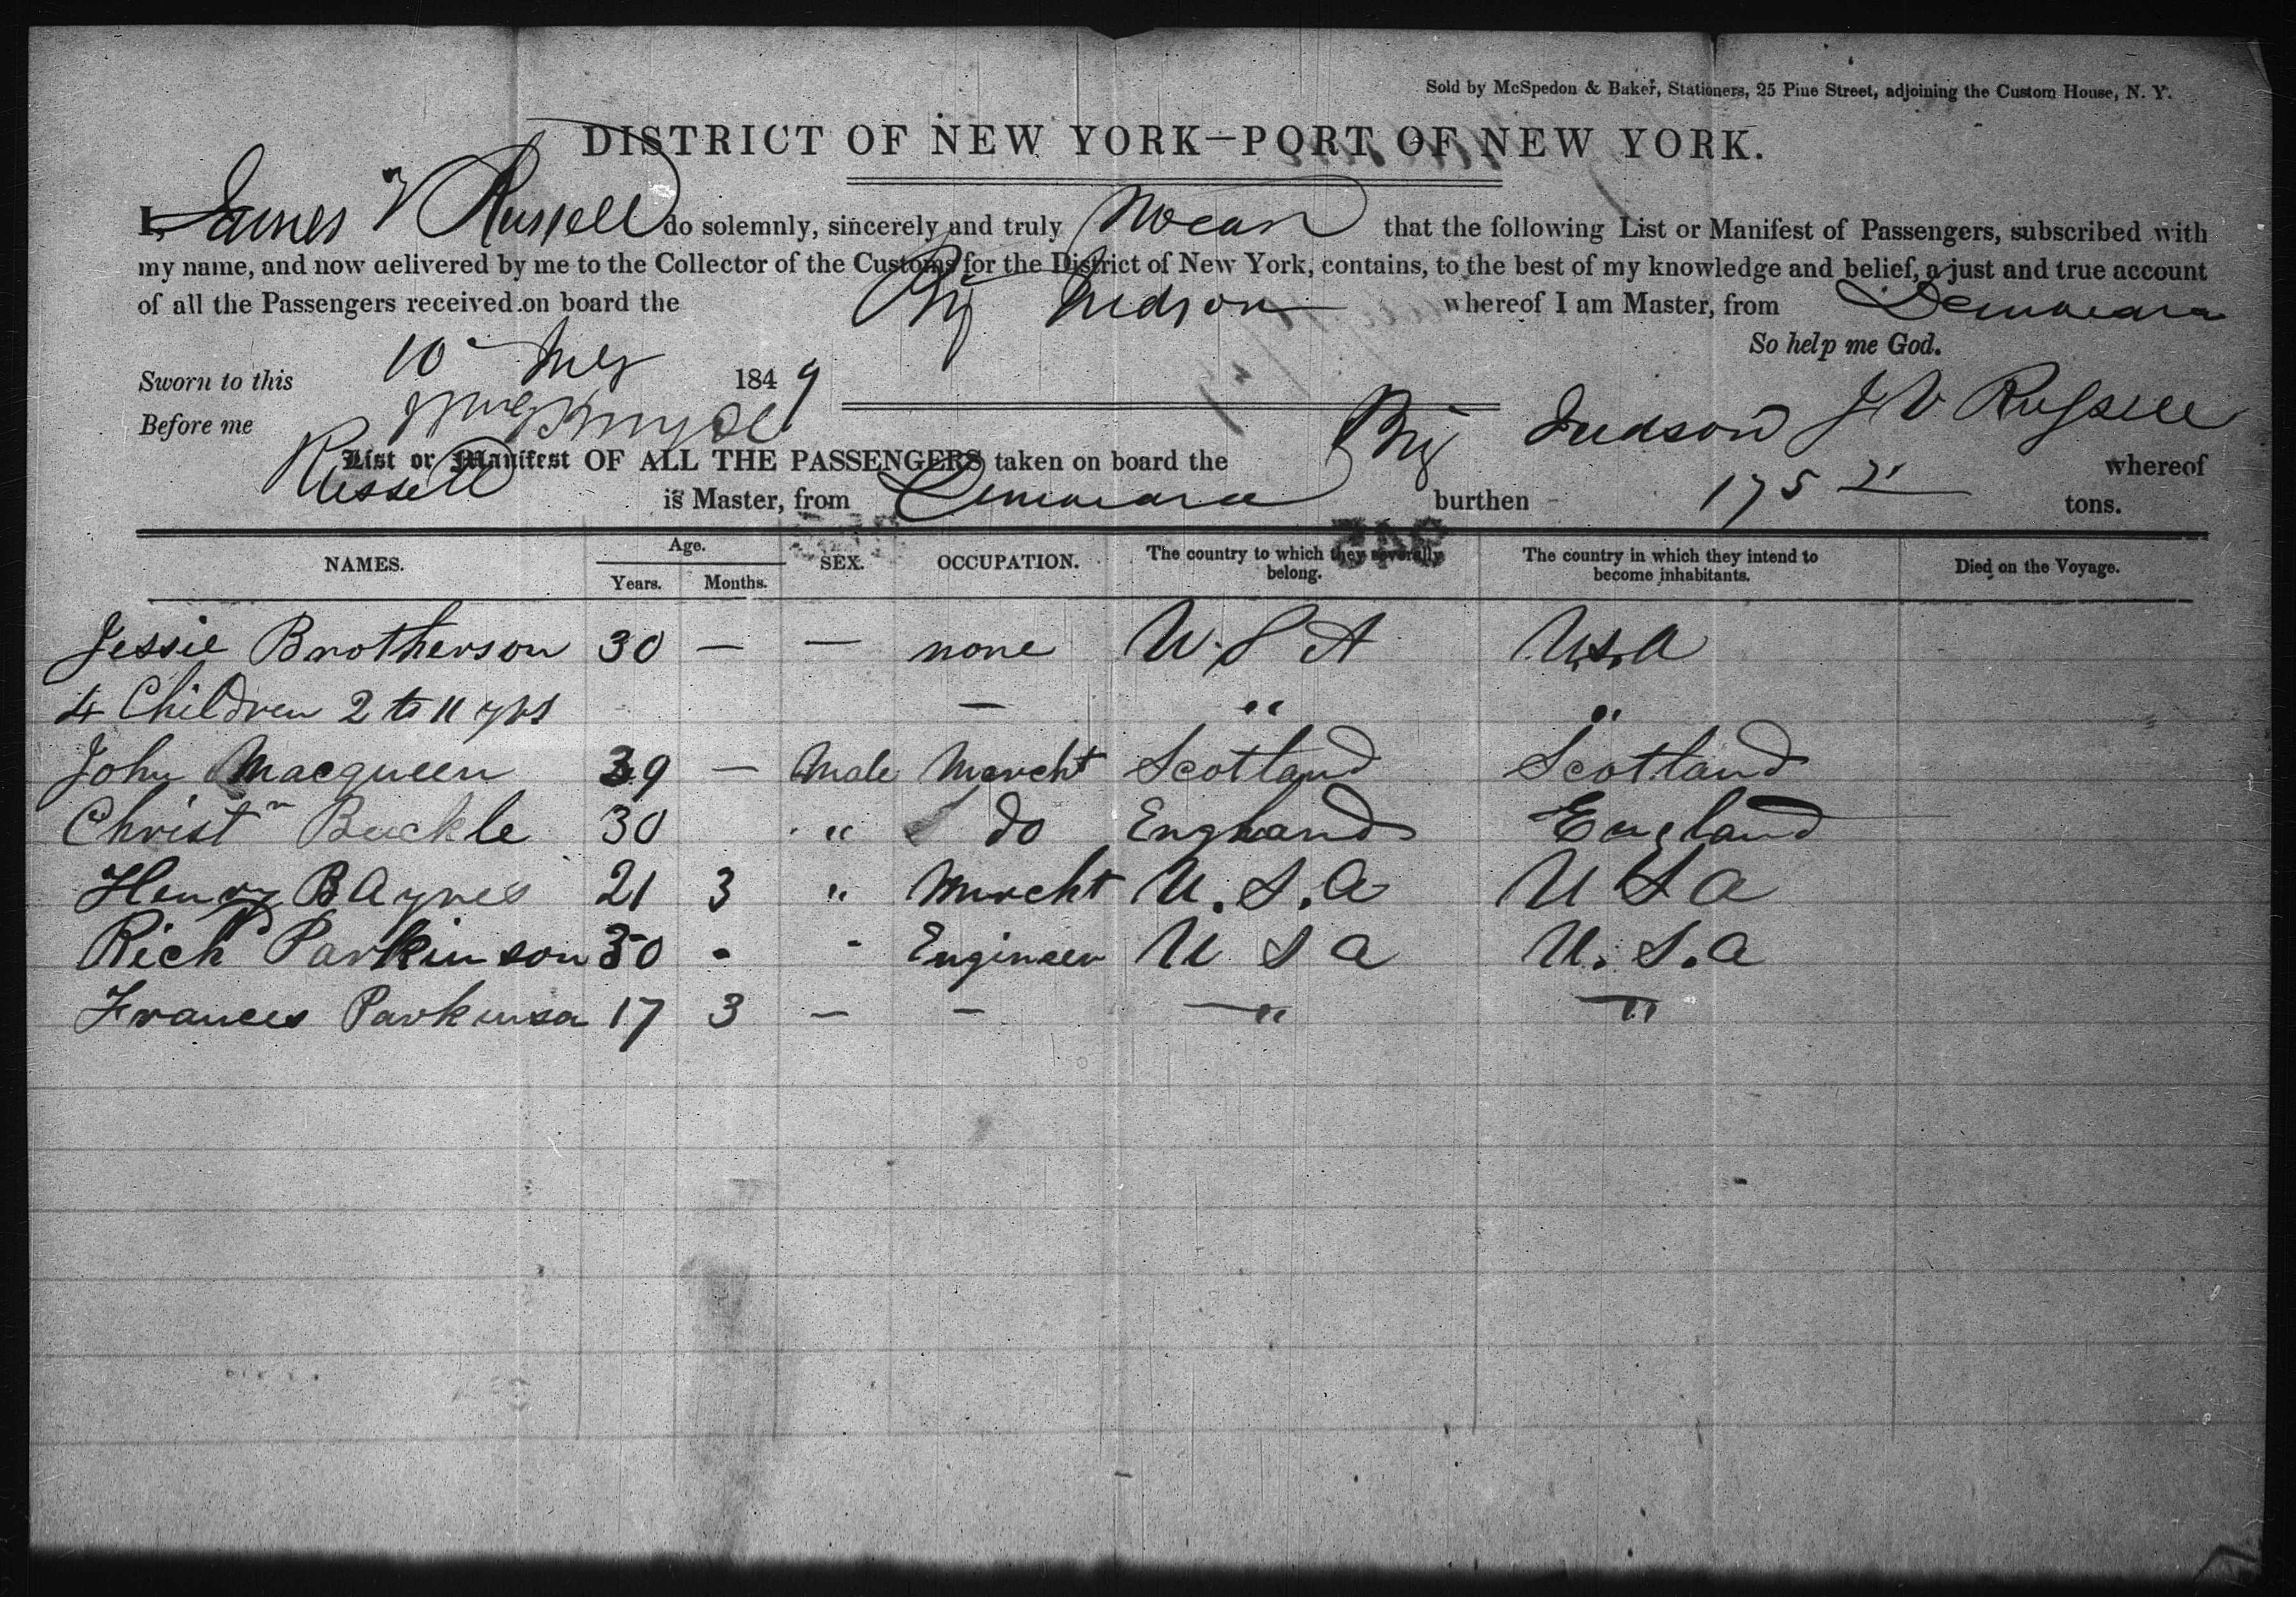 Sold by McSpedon & Baker, Stationers, 25 Pine Street, adjoining the Custom House, N. Y.
DISTRICT OF NEW YORK—PORT OF NEW YORK.
I, James V Russell do solemnly, sincerely and truly swear that the following List or Manifest of Passengers, subscribed with
my name, and now delivered by me to the Collector of the Customs for the District of New York, contains, to the best of my knowledge and belief, a just and true account
of all the Passengers received on board the Brig Judson whereof I am Master, from Demarara
So help me God.
Sworn to this 10 July 1849
Before me
J V Russell
List or Manifest OF ALL THE PASSENGERS taken on board the Brig Judson whereof
Russell is Master, from Demarara burthen 175 tons.
NAMES. Age. SEX. OCCUPATION. The country to which they severally belong. The country in which they intend to become inhabitants. Died on the Voyage.
Years. Months.
Jessie Brotherson 30 — — none U S A U.S.A
4 Children 2 to 11 yrs — " "
John Macqueen 39 — Male Mercht Scotland Scotland
Christn Buckle 30 " do England England
Henry B Aynes 21 3 " Mercht U.S.A U S A
Richd Parkinson 30 - - Engineer U S A U.S.A
Frances Parkinson 17 3 — — —" —"